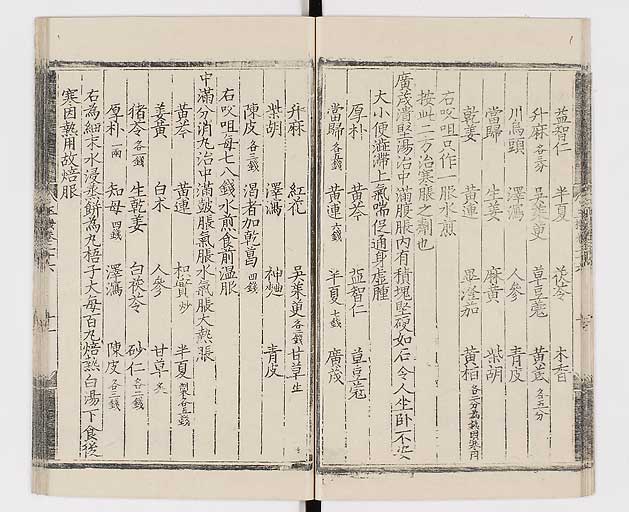 益智仁 半夏 茯苓 木香
升麻各三分 吳茱萸 草豆蔲 黃芪各五分
川烏頭 澤瀉 人參 青皮
當歸 生姜 麻黃 柴胡
乾姜 蓽澄茄 黃栢
右㕮咀只作一服水煎
按此二方治寒脹之劑也
廣茂潰堅湯治中滿腹脹內有積塊堅硬如石令人坐卧不安
大小便澁滯上氣喘促通身虛腫
厚朴 黃芩 益智仁 草豆蔲
當歸各五錢 黃連六錢 半夏七錢 廣茂
升麻 紅花 吳茱萸各二錢 甘草生
柴胡 澤瀉 神麯 青皮
陳皮各三錢 渴者加乾葛四錢
右㕮咀每七八錢水煎食前溫服
中滿分消丸治中滿皷脹氣脹水氣脹大熱脹
黃芩 黃連 枳實炒 半夏
姜黃 白朮 人參 甘草炙
猪苓各一錢 生乾姜 白茯苓 砂仁各二錢
厚朴一兩 知母四錢 澤瀉 陳皮各三錢
右為細末水浸蒸餅為丸梧子大每百丸焙熱白湯下食後
寒因熱用故焙服